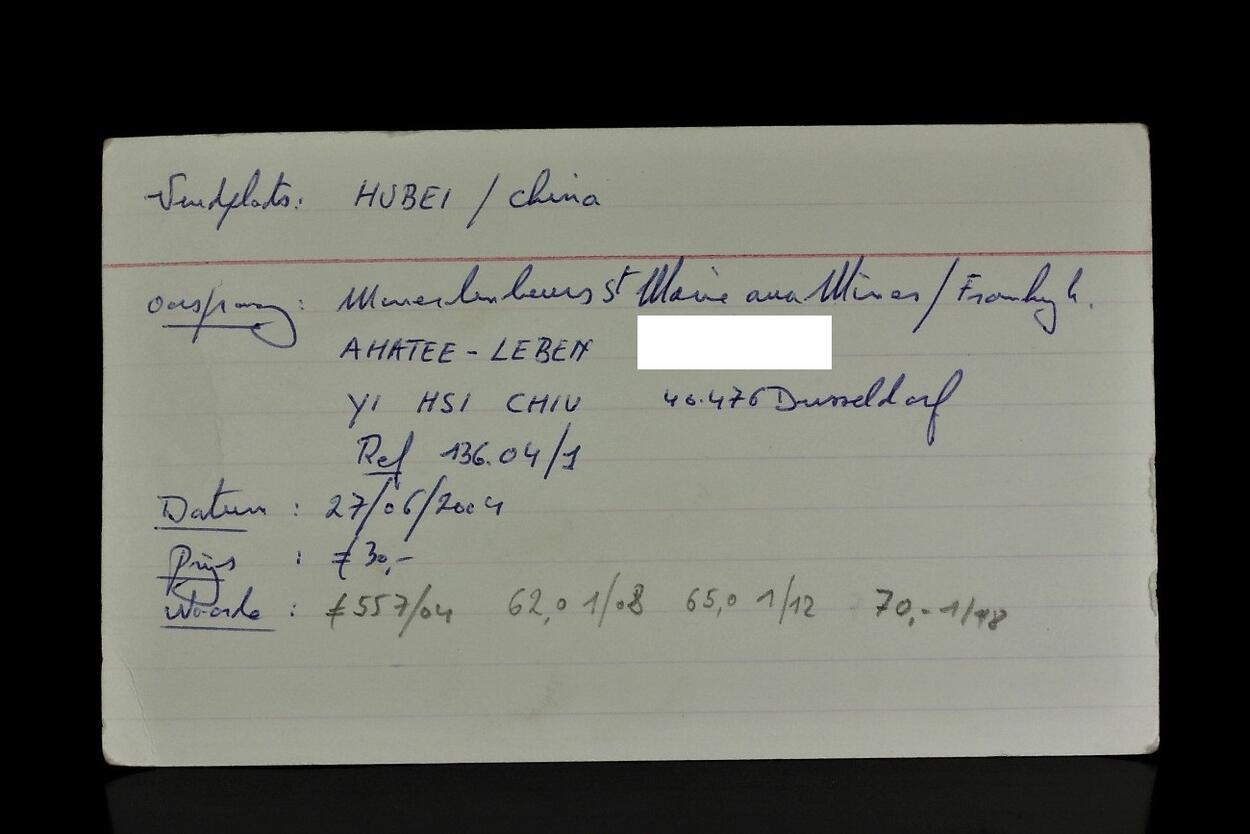 Vindplaats: HUBEI / China
oorsprong: Mineralenbeurs St Marie aux Mines / Frankrijk.
AHATEE - LEBEN
YI HSI CHIU 40.476 Dusseldorf
Ref 136.04/1
Datum : 27/06/2004
Prijs : € 30,-
Waarde : € 55 7/04 62,0 1/08 65,0 1/12 70,- 1/18